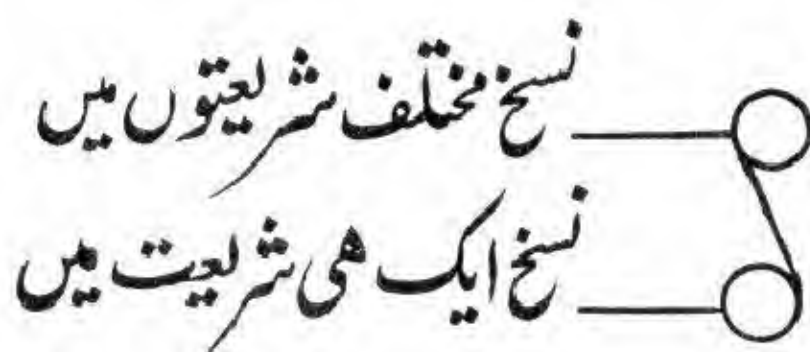 نسخ مختلف شریعتوں میں
نسخ ایک ھی شریعت میں